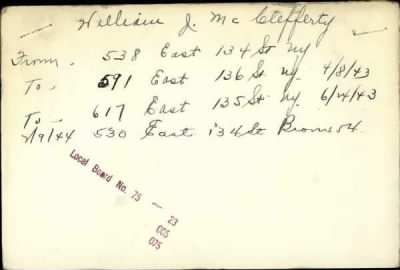 William J. McClefferty
From - 538 East 134 St NY
To - 591 East 136 St NY. 4/8/43
To - 617 East 135 St NY. 6/14/43
2/9/44 530 East 134 St Bronx 54.
Local Board No. 75 — 23
005
075